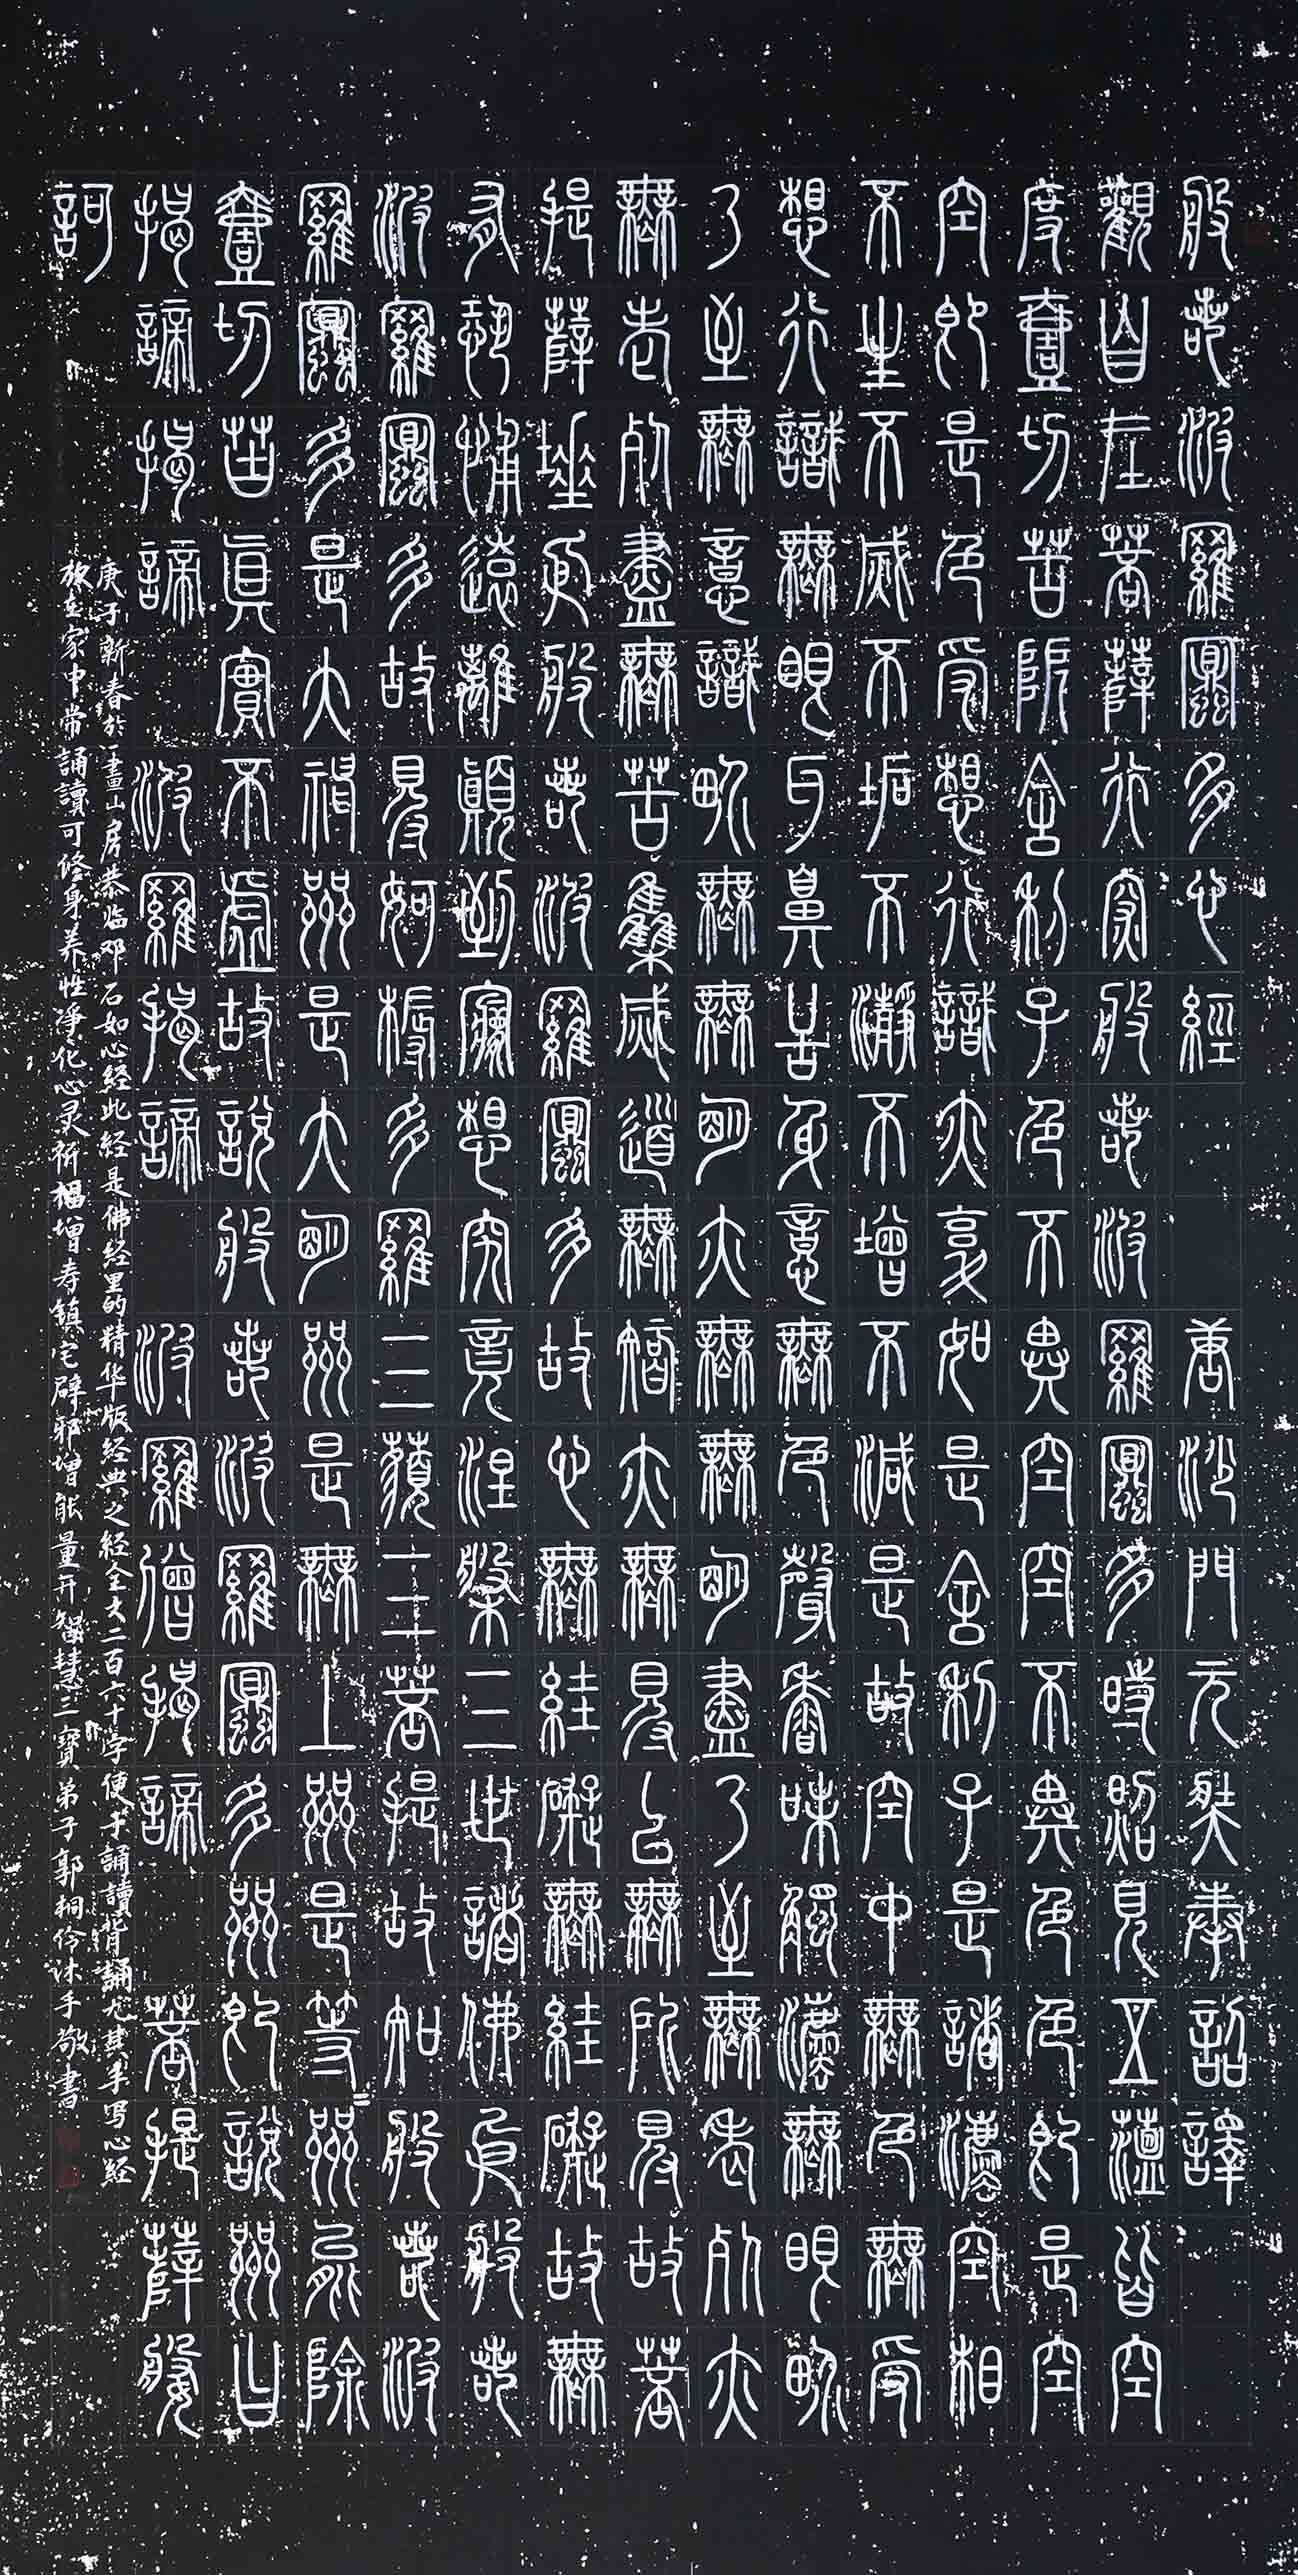 般若波羅蜜多心經 唐沙門元奘奉詔譯
觀自在菩薩行深般若波羅蜜多時照見五蘊皆空
度壹切苦阨舍利子色不異空空不異色色即是空
空即是色受想行識亦復如是舍利子是諸灋空相
不生不滅不垢不瀞不增不減是故空中無色無受
想行識無眼耳鼻舌身意無色聲香味觸灋無眼界
乃至無意識界無無明亦無無明盡乃至無老死亦
無老死盡無苦集滅道無智亦無得以無所得故菩
提薩埵依般若波羅蜜多故心無絓礙無絓礙故無
有恐怖遠離顛倒夢想究竟涅槃三世諸佛依般若
波羅蜜多故得阿耨多羅三藐三菩提故知般若波
羅蜜多是大神咒是大明咒是無上咒是等=咒能除
壹切苦真實不虛故說般若波羅蜜多咒即說咒曰
揭諦揭諦 波羅揭諦 波羅僧揭諦 菩提薩婆
訶
庚子新春於一畫山房恭临邓石如心经此经是佛经里的精华版经典之经全文二百六十字便于誦讀背誦尤其手写心经
放在家中常誦讀可修身养性净化心灵祈福增寿镇宅辟邪增能量开智慧三寶弟子郭桐伶沐手敬書